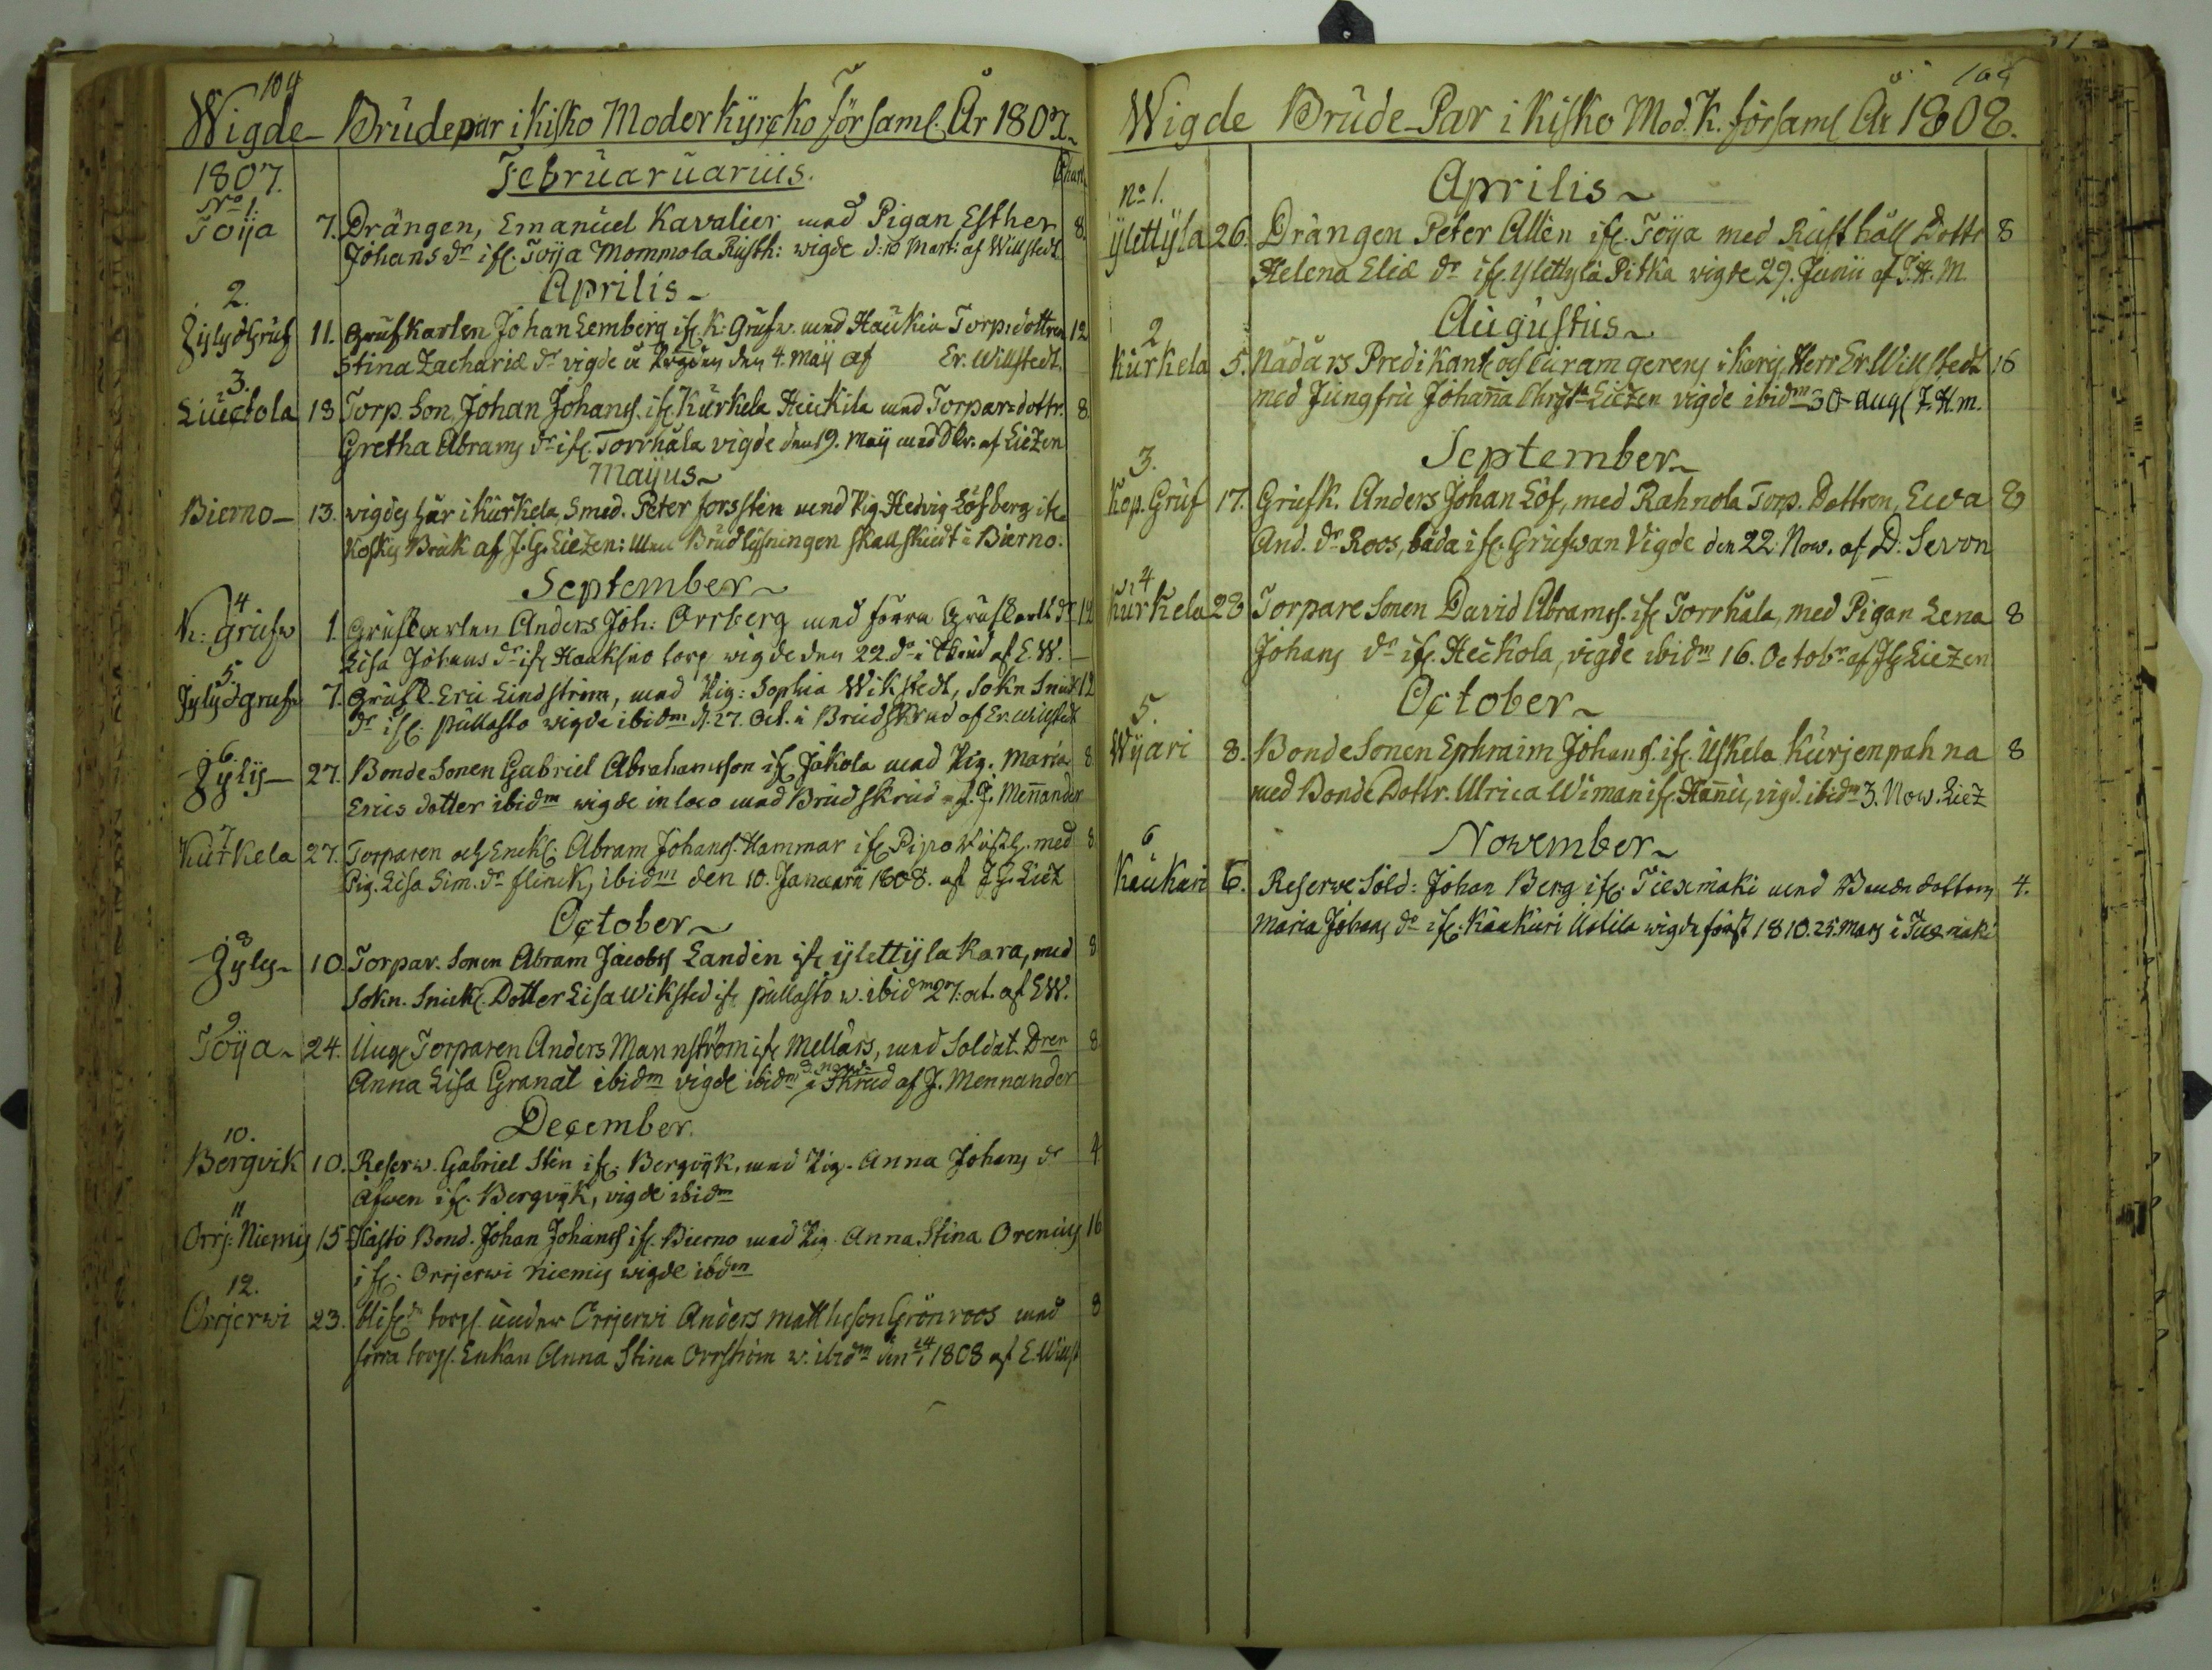 104
Wigde Brudepar i Kisko Moderkyrcko Församl. År 1807.
1807.
Februaruarius.
No 1.
Töija 7. Drängen, Emanuel Kavalier med Pigan Esther 8.
Johans dr ifr. Töija Mommola Rusth: wigde d: 10 Mart: af Willstedt.
Aprilis
2.
Jyly Gruf 11. Grufkarlen Johan Lemberg ifr. K: Grufw. med Haukia Torp. dottren 12
Stina Zachariæ dr vigde den 4. Maij af Er. Willstedt.
3.
Liuctola 13 Torp. Son Johan Johans. ifr. Kurkela Heickila med Torpare dottr. 8
Gretha Abrams dr ifr. Torrhåla vigde den 19. Maij af Liezen
Maijus
Bierno 13. vigdes här i Kurkela, Smed. Peter Forssten med Pig. Hedvig Löfberg
Koskis Bruk af J. G. Liezen: Brudlysningen skall skedt i Bierno.
September
4
K: Grufw 1. Grufkarlen Anders Joh: Orrberg med förra dr 12
Lisa Johans dr ifr Haaksuo torp wigde den 22. dr af E. W.
5.
Jyly gruf 7. Grufk. Eric Lindström, med Pig: Sophia Wikstedt, Sokn Snick 12
dr ifr. Pullasto wigde ibidm d. 27. Oct. i Brudskrud af Er. Willstedt
6.
Jylÿ 27. Bonde Sonen Gabriel Abrahamsson ifr. Jakola med Pig. Maria 8
Erics dotter ibidm wigde in loco med Brudskrud af J. Mennander
7
Kurkela 27. Torparen och Enckl. Abram Johans. Hammar ifr Pipo med 8
Pig. Lisa Sim. dr Flinck, ibidm den 10. Januarii 1808. af J G. Liez
October
8
Jyly 10. Torpar. Sonen Abram Jacobs Landen ifr Ylettÿla Kara, med 8
Sokn. Snick. Dotter Lisa Wiksted ifr Pullasto w. ibidm 27. oct. af E W.
9
Töija 24. Ung Torparen Anders Mannström ifr Mellårs, med Soldat. Dren 8
Anna Lisa Granat ibidm vigde ibidm i Skrud af J. Mennander
December.
10.
Bergvik 10. Reserw. Gabriel Sten ifr. Bergvÿk, med Pig. Anna Johans dr 4
äfwen ifr. Bergvÿk, vigde ibidm
11
Orrj: Niemis 15 Hästö Bond. Johan Johans ifr. Bierno med Pig. Anna Stina Orenius 16
ifr. Orrjerwi Niemis wigde ibdm
12.
Orrjerwi 23. torp. under Orrjerwi Anders Mattheson Grönroos med 8
förra torp. Enkan Anna Stina Orrström w. ibidm den 1808 af E. Willst
Wigde Brude Par i Kisko Mod. K. församl År 1808.
No 1.
Aprilis
Ylettÿla 26. Drängen Peter Allén ifr. Töija med Rusthåll Dottr 8
Helena Eliæ dr ifr. Ylettyla Pitkä vigde 29. Junii af J. H. M.
Augustus
2
Kurkela 5. Nådårs Predikant och Curam gerens i Karis Herr Er. Willstedt 16
med Jungfru Johanna Liezen vigde ibidm 30 Aug J. H. M.
September
3.
Kop. Gruf 17. Grufk. Anders Johan Löf, med Rahnola Torp. Dottren, Ewa 8
And. dr Roos, båda ifr. Grufwan Vigde den 22. Now. af D: Sevon
4
Kurkela 28 Torpare Sonen David Abrams. ifr Torrhåla, med Pigan Lena 8
Johans dr ifr. Heikola, vigde ibidm 16. Octobr. af J G Liezen
October
5.
Wÿari 8. Bonde Sonen Ephraim Johans. ifr. Uskela Kurjenpahna 8
med Bonde Dottr. Ulrica Wiman ifr. Hannu, vigd. ibidm 3. Now. Liez
November
6
Kaukuri 6. Reserve Sold: Johan Berg ifr. Tiexmäki med dottern 4.
Maria Johans dr ifr. Kaukuri Uotila wigde först 1810. 25. Mars i Tiexmäki